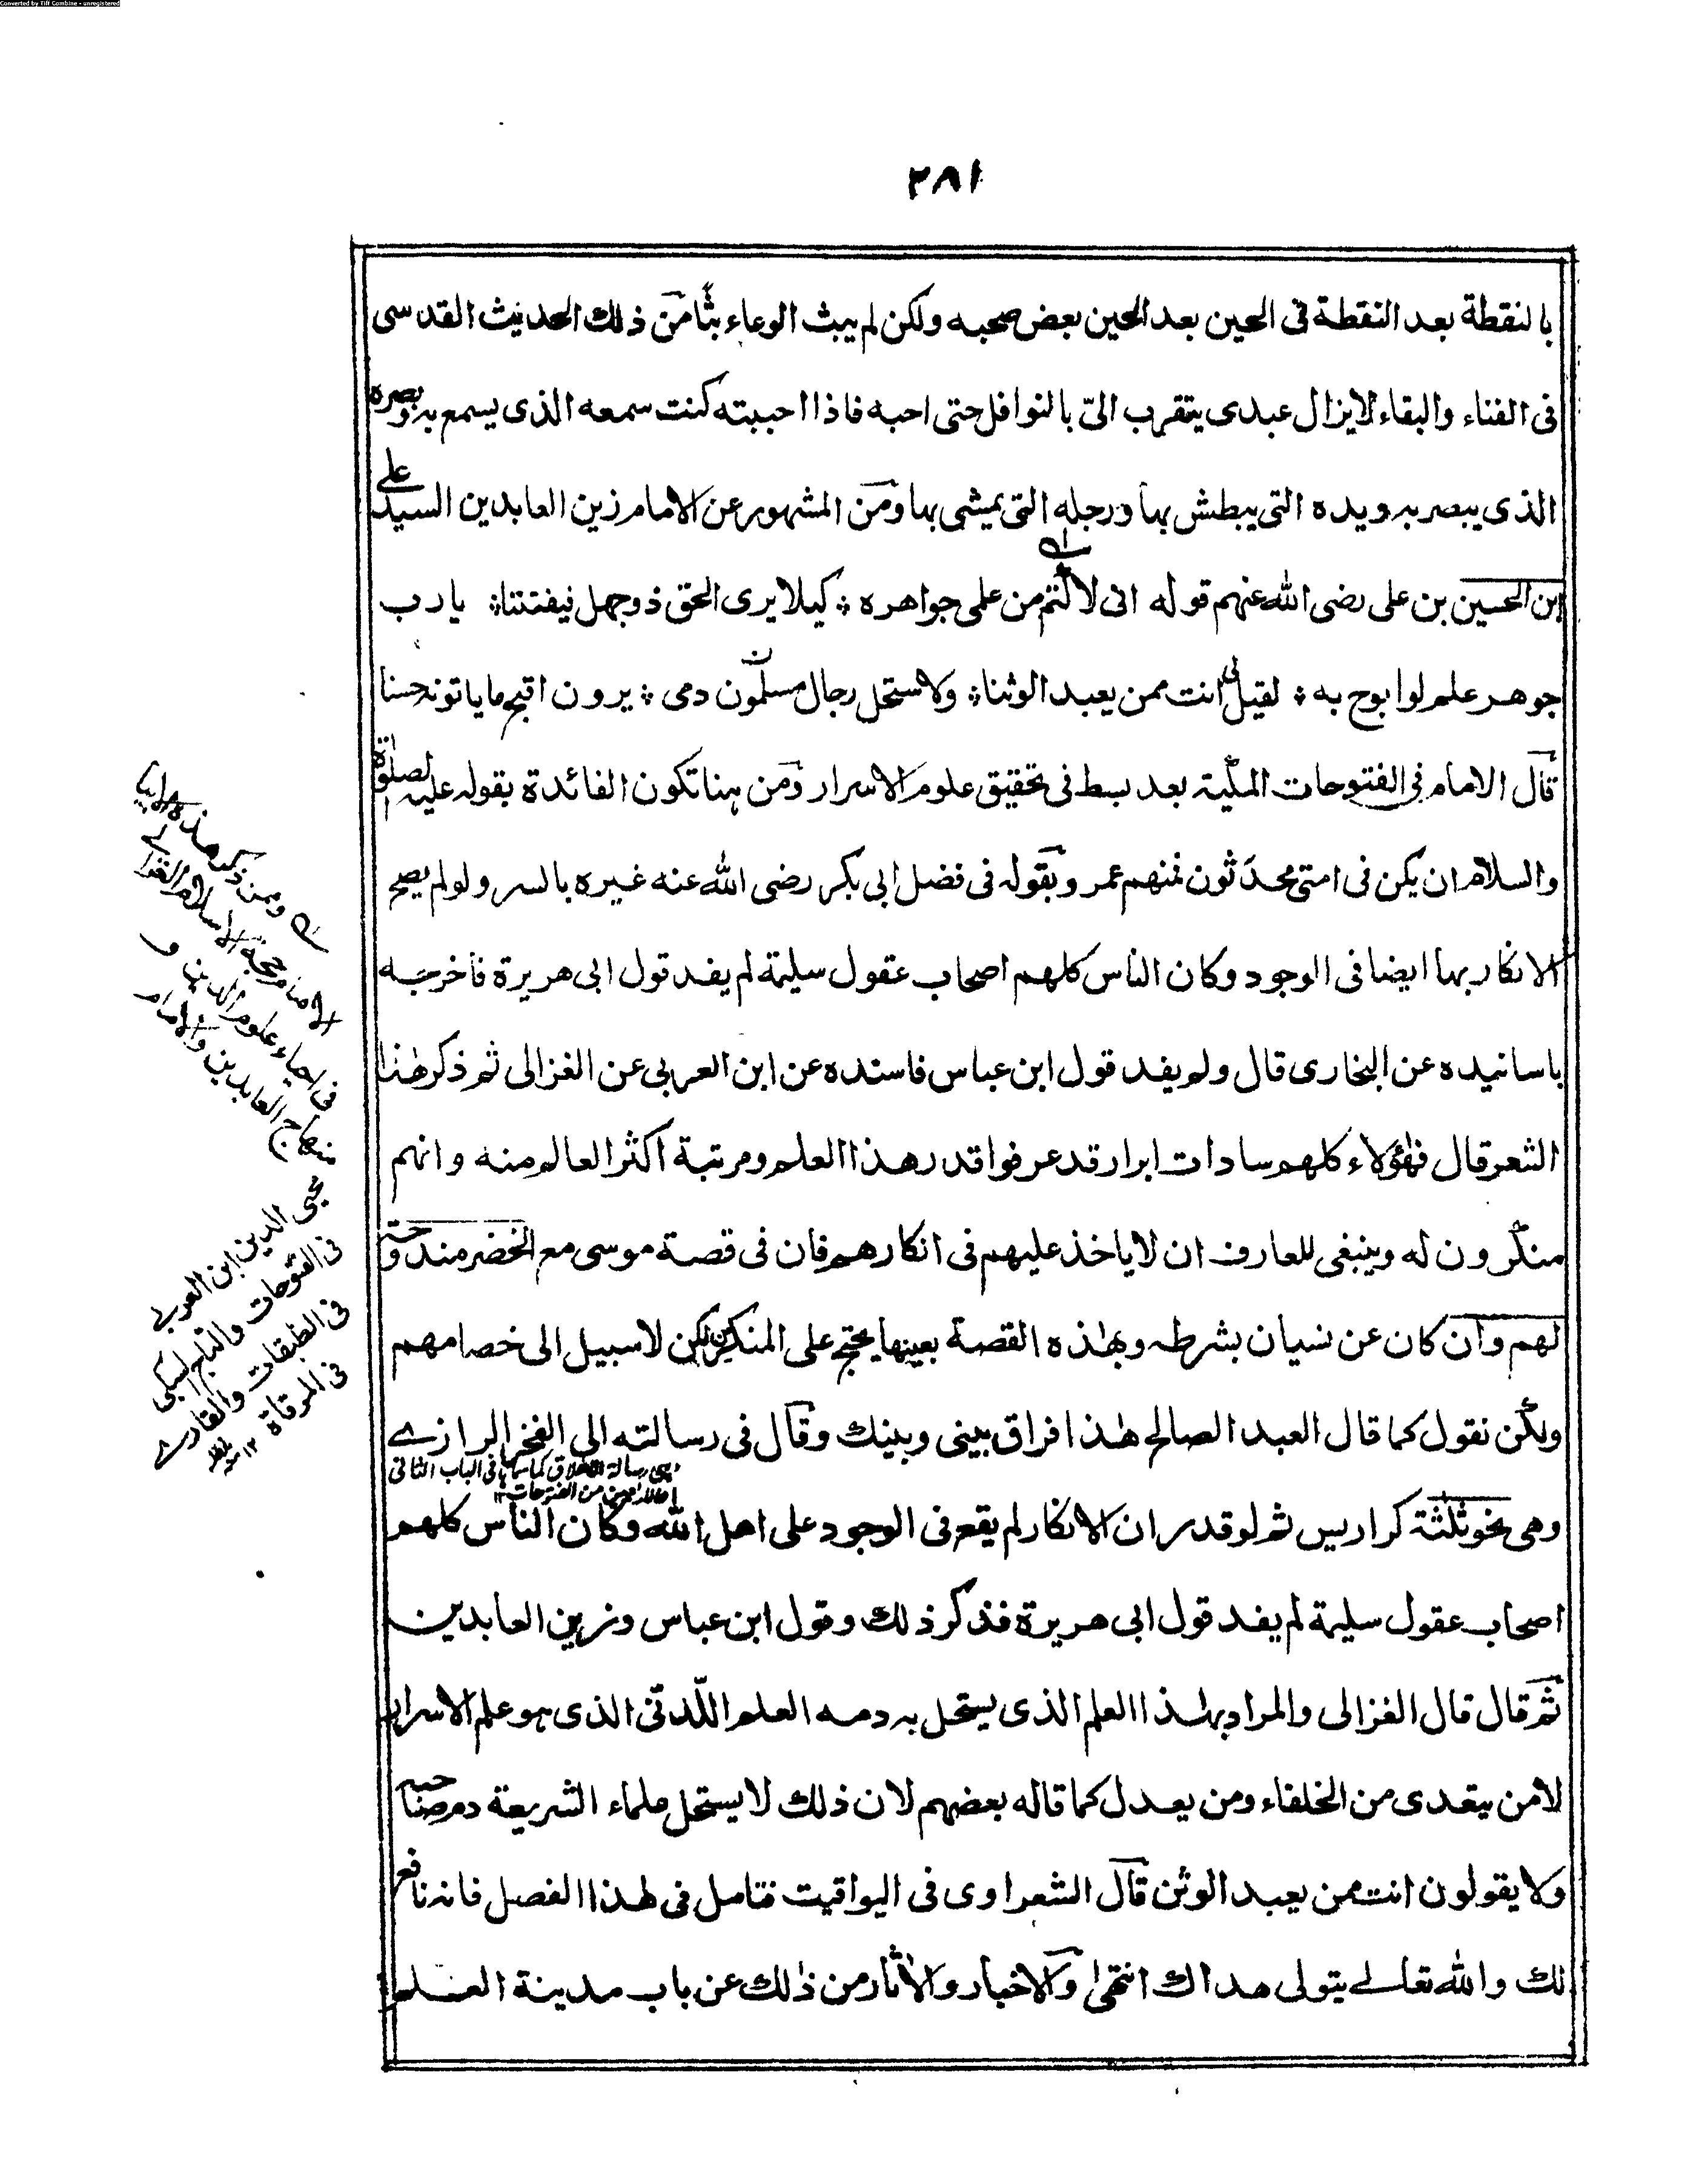 Converted by Tiff Combine - unregistered
٢٨١
بالنقطة بعد النقطة فى الحين بعد الحين بعض صحبه ولكن لم يبث الوعاء بثّا من ذلك الحديث القدسى
فى الفناء والبقاء لايزال عبدى يتقرب الىّ بالنوافل حتى احبه فاذا احببته كنت سمعه الذى يسمع به وبصره
الذى يبصر به ويده التى يبطش بها ورجله التى يمشى بها ومن المشهور عن الامام زين العابدين السيد على
ابن الحسين بن على رضى الله عنهم قوله انى لاكتم من علمى جواهره ؛ كيلا يرى الحق ذو جهل فيفتتنا ؛ يا رب
جوهر علم لو ابوح به ؛ لقيل لى انت ممن يعبد الوثنا ؛ ولاستحل رجال مسلمون دمى ؛ يرون اقبح ما ياتونه حسنا
قال الامام فى الفتوحات المكّية بعد بسط فى تحقيق علوم الاسرار ومن هنا تكون الفائدة بقوله عليه الصلوٰة
والسلام ان يكن فى امتى محدَثون فمنهم عمر وبقوله فى فضل ابى بكر رضى الله عنه غيره بالسر ولو لم يصح
الانكار بها ايضا فى الوجود وكان الناس كلهم اصحاب عقول سليمة لم يفد قول ابى هريرة فأخرجه
باسانيده عن البخارى قال ولم يفد قول ابن عباس فاسنده عن ابن العربى عن الغزالى ثم ذكر هٰذا
الشعر قال فهٰؤلاء كلهم سادات ابرار قد عرفوا قدر هذا العلم ومرتبة اكثر العالم منه وانهم
منكرون له وينبغى للعارف ان لا ياخذ عليهم فى انكارهم فان فى قصة موسى مع الخضر مندوحة
لهم وان كان عن نسيان بشرطه وبهٰذه القصة بعينها يحتج على المنكرين لكن لا سبيل الى خصامهم
ولكن نقول كما قال العبد الصالح هٰذا فراق بينى وبينك وقال فى رسالته الى الفخر الرازى
وهى نحو ثلثة كراريس ثم لو قدر ان الانكار لم يقع فى الوجود على اهل الله وكان الناس كلهم
اصحاب عقول سليمة لم يفد قول ابى هريرة فذكر ذلك وقول ابن عباس وزين العابدين
ثم قال قال الغزالى والمراد بهٰذا العلم الذى يستحل به دمه العلم اللّدنّى الذى هو علم الاسرار
لا من يتعدى من الخلفاء ومن يعدل كما قاله بعضهم لان ذلك لا يستحل علماء الشريعة دم صاحبه
ولا يقولون انت ممن يعبد الوثن قال الشعراوى فى اليواقيت فتامل فى هٰذا الفصل فانه نافع
لك والله تعالى يتولى هداك انتهى والاخبار والاٰثار من ذٰلك عن باب مدينة العلم
وممن ذكر هذه الابيا
الامام حجة الاسلام الغزالى
فى احياء علوم الدين و
منهاج العابدين والامام
محيى الدين ابن العربى
فى الفتوحات والتاج السبكى
فى الطبقات والقارى
فى المرقاة ١٢ منه